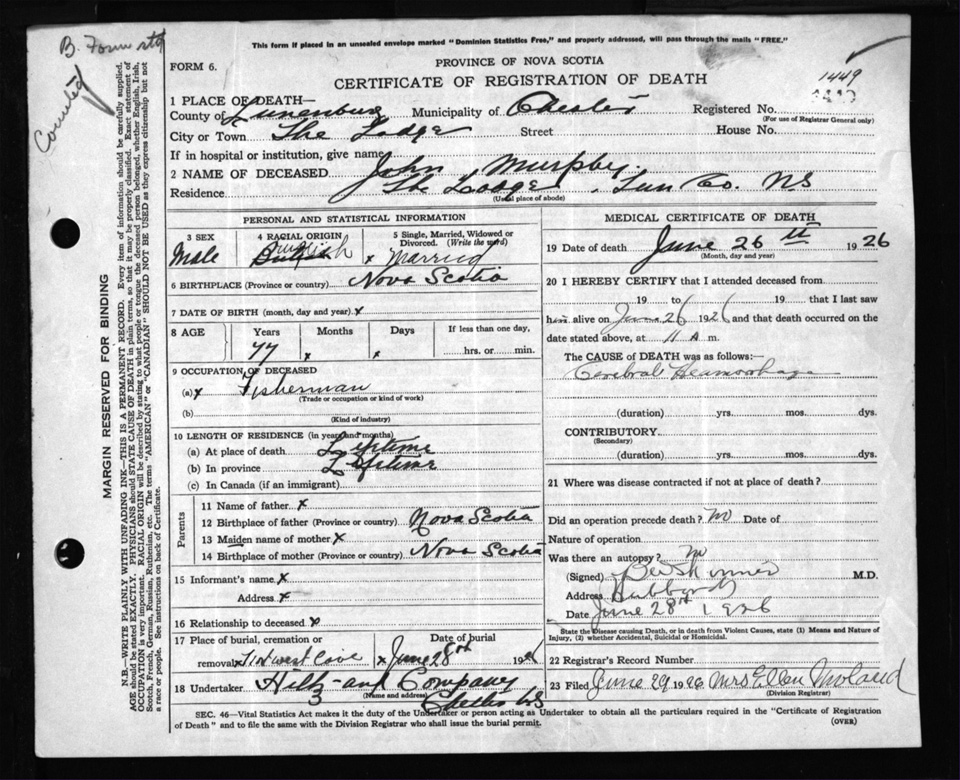 B. Form
Counted
This form if placed in an unsealed envelope marked "Dominion Statistics Free," and properly addressed, will pass through the mails "FREE."
FORM 6.
PROVINCE OF NOVA SCOTIA
CERTIFICATE OF REGISTRATION OF DEATH
1449
MARGIN RESERVED FOR BINDING
N.B.—WRITE PLAINLY WITH UNFADING INK—THIS IS A PERMANENT RECORD. Every item of information should be carefully supplied.
AGE should be stated EXACTLY. PHYSICIANS should STATE CAUSE OF DEATH in plain terms, so that it may be properly classified. Exact statement of
OCCUPATION is very important. RACIAL ORIGIN will be described by stating to what people or tongue the deceased person belonged, whether English, Irish,
Scotch, French, German, Russian, Ruthenian, etc. The terms "AMERICAN" or "CANADIAN" SHOULD NOT BE USED as they express citizenship but not
a race or people. See instructions on back of Certificate.
1 PLACE OF DEATH—
County of Lunenburg Municipality of Chester Registered No.
(For use of Registrar General only)
City or Town The Lodge Street House No.
If in hospital or institution, give name
2 NAME OF DECEASED John Murphy.
Residence The Lodge, Lun Co. NS
(Usual place of abode)
PERSONAL AND STATISTICAL INFORMATION
3 SEX
Male
4 RACIAL ORIGIN
5 Single, Married, Widowed or Divorced. (Write the word)
x Married
6 BIRTHPLACE (Province or country) Nova Scotia
7 DATE OF BIRTH (month, day and year) x
8 AGE Years Months Days If less than one day,
77 x x hrs. or min.
9 OCCUPATION OF DECEASED
(a) x Fisherman
(Trade or occupation or kind of work)
(b)
(Kind of industry)
10 LENGTH OF RESIDENCE (in years and months)
(a) At place of death Lifetime
(b) In province Lifetime
(c) In Canada (if an immigrant)
Parents
11 Name of father x
12 Birthplace of father (Province or country) Nova Scotia
13 Maiden name of mother x
14 Birthplace of mother (Province or country) Nova Scotia
15 Informant's name x
Address x
16 Relationship to deceased x
17 Place of burial, cremation or Date of burial
removal x June 28th 1926
18 Undertaker Hiltz and Company
(Name and address)
Chester NS
MEDICAL CERTIFICATE OF DEATH
19 Date of death June 26th 1926
(Month, day and year)
20 I HEREBY CERTIFY that I attended deceased from
19 to 19 that I last saw
him alive on June 26 1926 and that death occurred on the
date stated above, at 11 A m.
The CAUSE OF DEATH was as follows:
Cerebral Heamorrhage
(duration) yrs. mos. dys.
CONTRIBUTORY
(Secondary)
(duration) yrs. mos. dys.
21 Where was disease contracted if not at place of death?
Did an operation precede death? no Date of
Nature of operation
Was there an autopsy? no
(Signed) Skinner M.D.
Address Hubbards
Date June 28th 1926
State the Disease causing Death, or in death from Violent Causes, state (1) Means and Nature of
Injury, (2) whether Accidental, Suicidal or Homicidal.
22 Registrar's Record Number
23 Filed June 29 1926 Mrs Ellen
(Division Registrar)
SEC. 46—Vital Statistics Act makes it the duty of the Undertaker or person acting as Undertaker to obtain all the particulars required in the "Certificate of Registration
of Death" and to file the same with the Division Registrar who shall issue the burial permit.
(OVER)